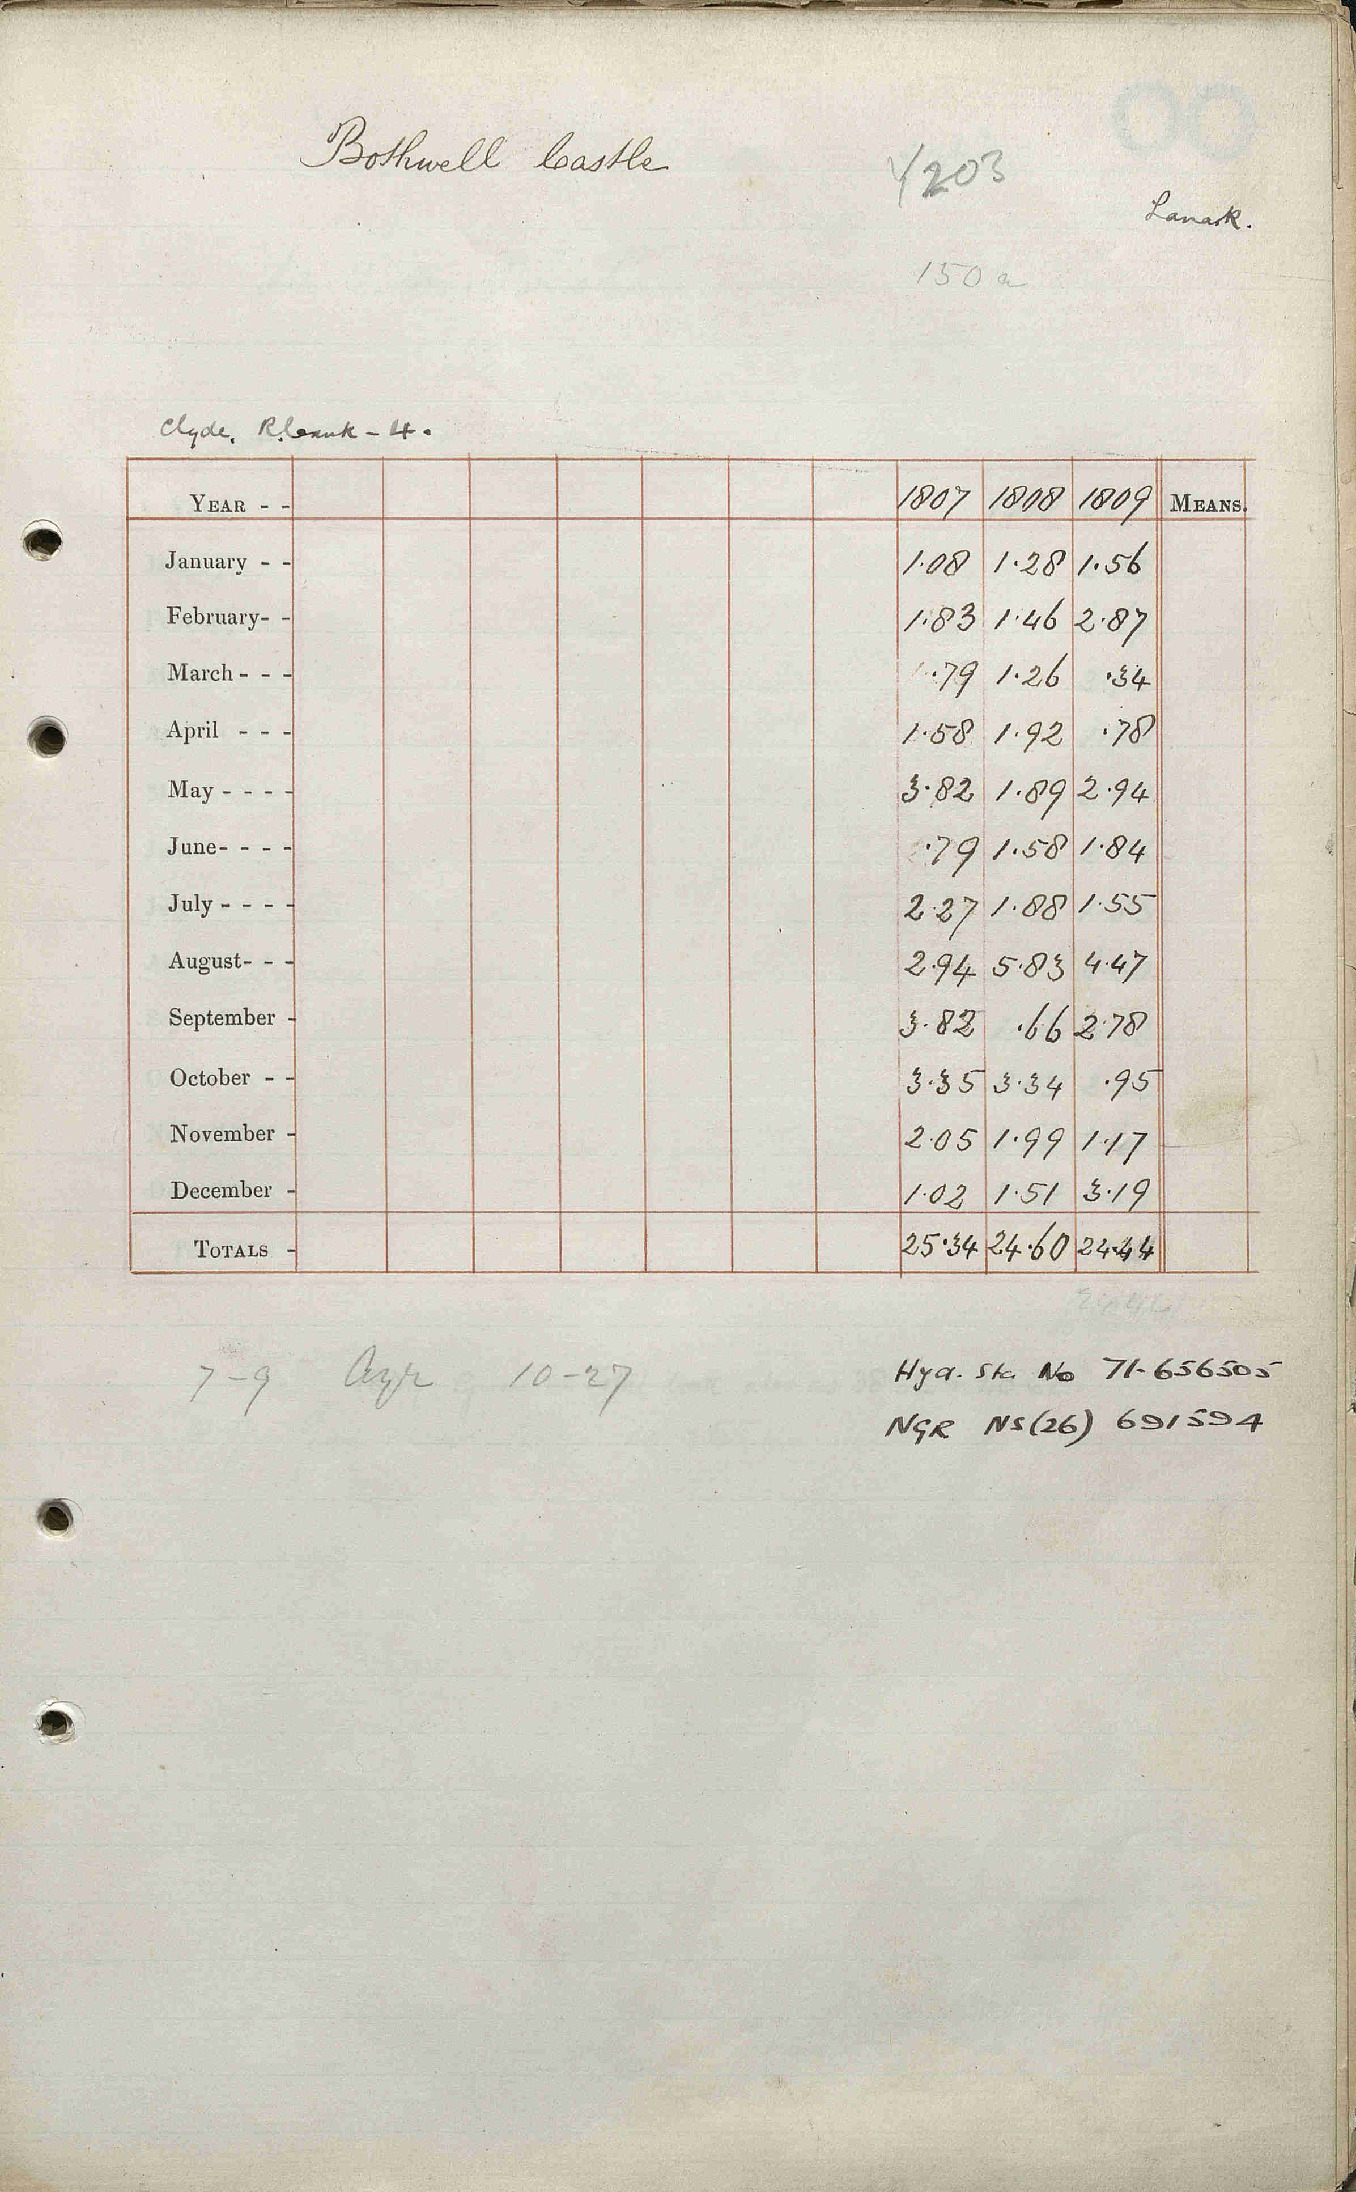 Bothwell Castle
4203
Lanark.
150 a
Clyde. R. bank - 4.
YEAR - - 1807 1808 1809 MEANS.
January - - 1·08 1·28 1·56
February- - 1·83 1·46 2·87
March - - - ·79 1·26 ·34
April - - - 1·58 1·92 ·78
May - - - - 3·82 1·89 2·94
June- - - - ·79 1·58 1·84
July - - - - 2·27 1·88 1·55
August- - - 2·94 5·83 4·47
September - 3·82 ·66 2·78
October - - 3·35 3·34 ·95
November - 2·05 1·99 1·17
December - 1·02 1·51 3·19
TOTALS - 25·34 24·60 24·44
7-9 Ayr 10-27
Hyd. Sta No 71-656505
NGR NS(26) 691594